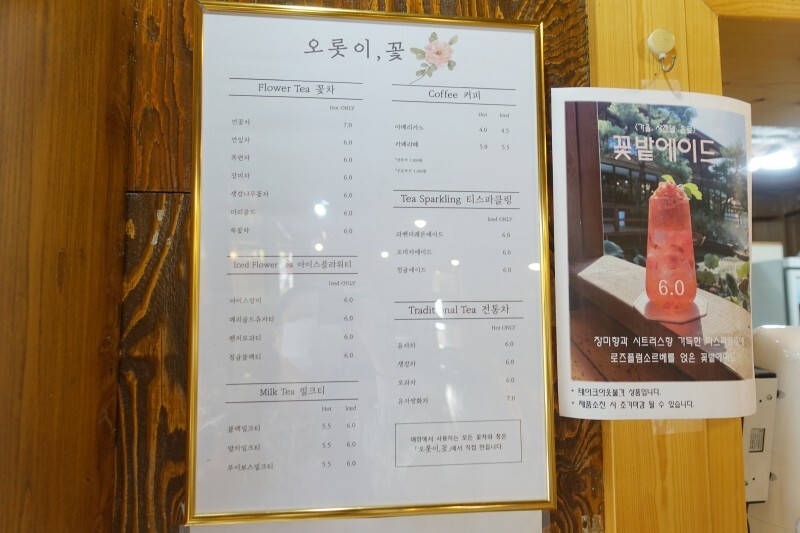 오롯이, 꽃
Flower Tea 꽃차
Hot ONLY
연꽃차 7.0
연잎차 6.0
목련차 6.0
장미차 6.0
생강나무꽃차 6.0
마리골드 6.0
쑥꽃차 6.0
Iced Flower Tea 아이스플라워티
Iced ONLY
아이스장미 6.0
메리골드유자티 6.0
팬지모과티 6.0
청귤블랙티 6.0
Milk Tea 밀크티
Hot Iced
블랙밀크티 5.5 6.0
말차밀크티 5.5 6.0
루이보스밀크티 5.5 6.0
Coffee 커피
Hot Iced
아메리카노 4.0 4.5
카페라떼 5.0 5.5
Tea Sparkling 티스파클링
Iced ONLY
라벤더레몬에이드 6.0
오미자에이드 6.0
청귤에이드 6.0
Traditional Tea 전통차
Hot ONLY
유자차 6.0
생강차 6.0
모과차 6.0
유자쌍화차 7.0
매장에서 사용하는 모든 꽃차와 청은
「오롯이,꽃」에서 직접 만듭니다.
꽃밭에이드
6.0
장미향과 시트러스향 가득한 티스파클링에
로즈플럼소르베를 얹은 꽃밭에이드
* 테이크아웃불가 상품입니다.
* 제품소진 시 조기마감 될 수 있습니다.